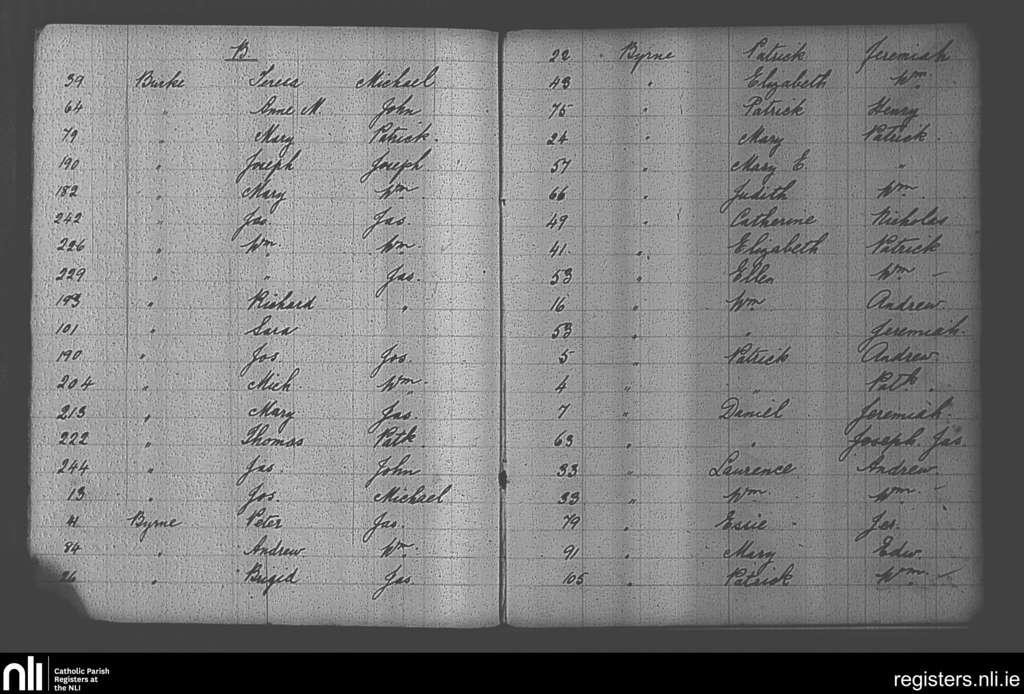 B
39 Burke Teresa Michael
64 " Anne M. John
79 " Mary Patrick.
190 " Joseph Joseph
182 " Mary Wm
242 " Jas. Jas.
226 " Wm. Wm.
229 " " Jas.
193 " Richard "
101 " Sara
190 " Jos. Jos.
204 " Mich. Wm.
213 " Mary Jas.
222 " Thomas Patk.
244 " Jas. John
13 " Jos. Michael
41 Byrne Peter Jas.
84 " Andrew Wm.
26 " Brigid Jas.
22 Byrne Patrick Jeremiah
43 " Elizabeth Wm.
75 " Patrick Henry
24 " Mary Patrick
57 " Mary E. "
66 " Judith Wm
49 " Catherine Nicholas
41. " Elizabeth Patrick
53 " Ellen Wm –
16 " Wm Andrew.
53 " " Jeremiah.
5 " Patrick Andrew.
4 " " Patk.
7 " Daniel Jeremiah.
63 " " Joseph Jas.
33 " Laurence Andrew.
33 " Wm. Wm. –
79 " Essie - Jas.
91 " Mary Edw.
105 " Patrick Wm. –
nli
Catholic Parish
Registers at
the NLI
registers.nli.ie